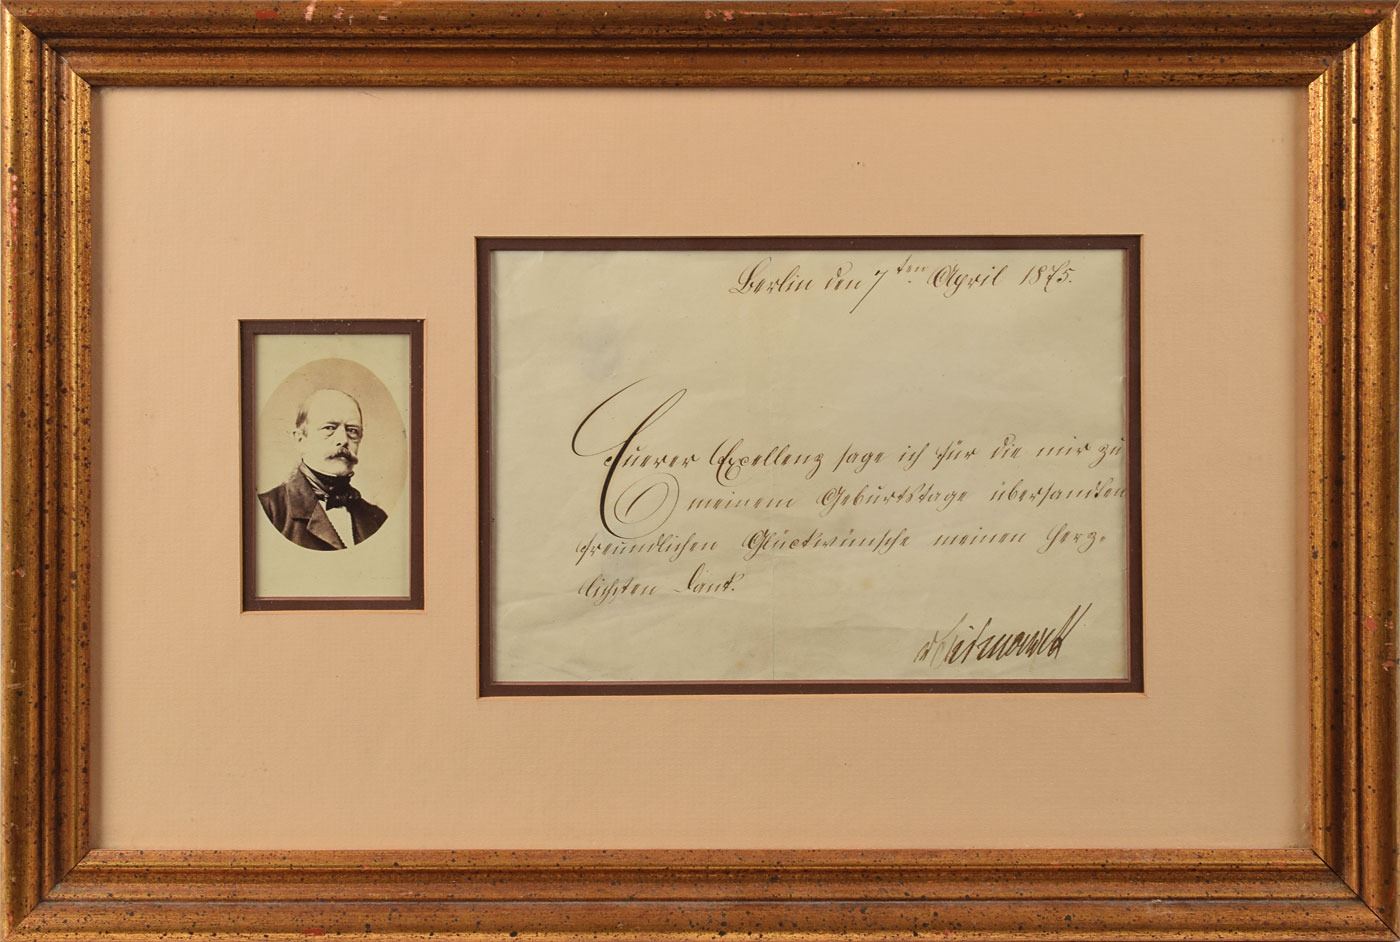 Berlin den 7ten April 1875.
Euerer Excellenz sage ich für die mir zu
meinem Geburtstage übersandten
freundlichen Glückwünsche meinen herz-
lichsten Dank.
vBismarck